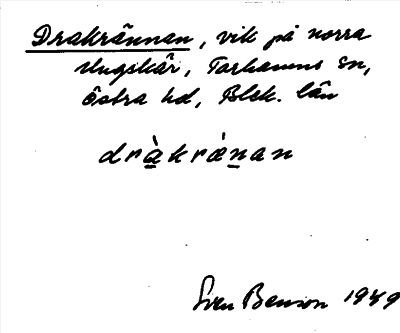 Drakrännan, vik på norra
Ungskär, Torhamns sn,
Östra hd, Blek. län
dràkrænan
Sven Benson 1949